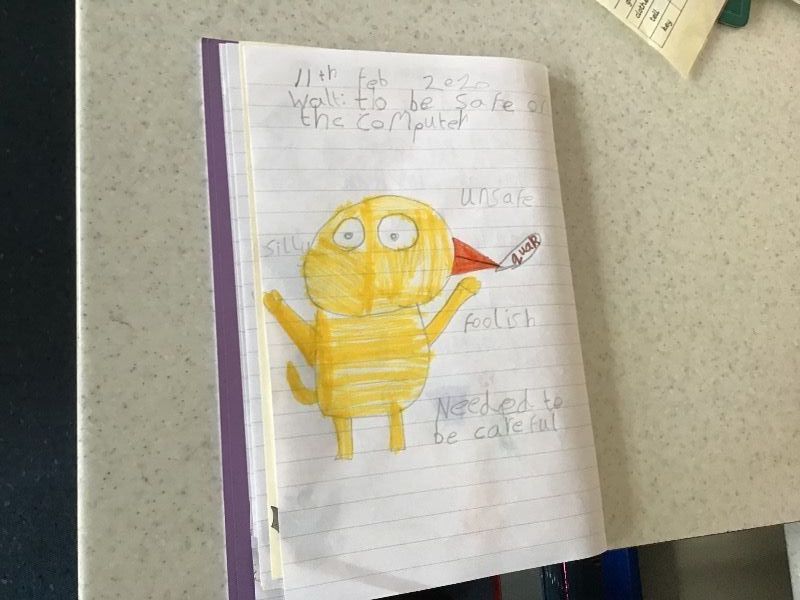 11th Feb 2020
Walt: to be safe on
the computer
unsafe
silly
quaR
foolish
Needed to
be careful
clothe
tell
key